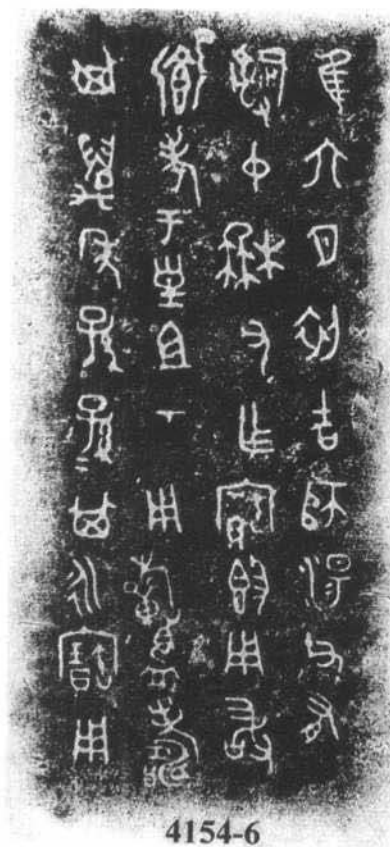 隹六月初吉師湯父有
𤔲中枏父乍寶𣪘用敢
鄉孝于皇且丂用𣄨眉壽
其萬年子孫其永寶用
4154-6